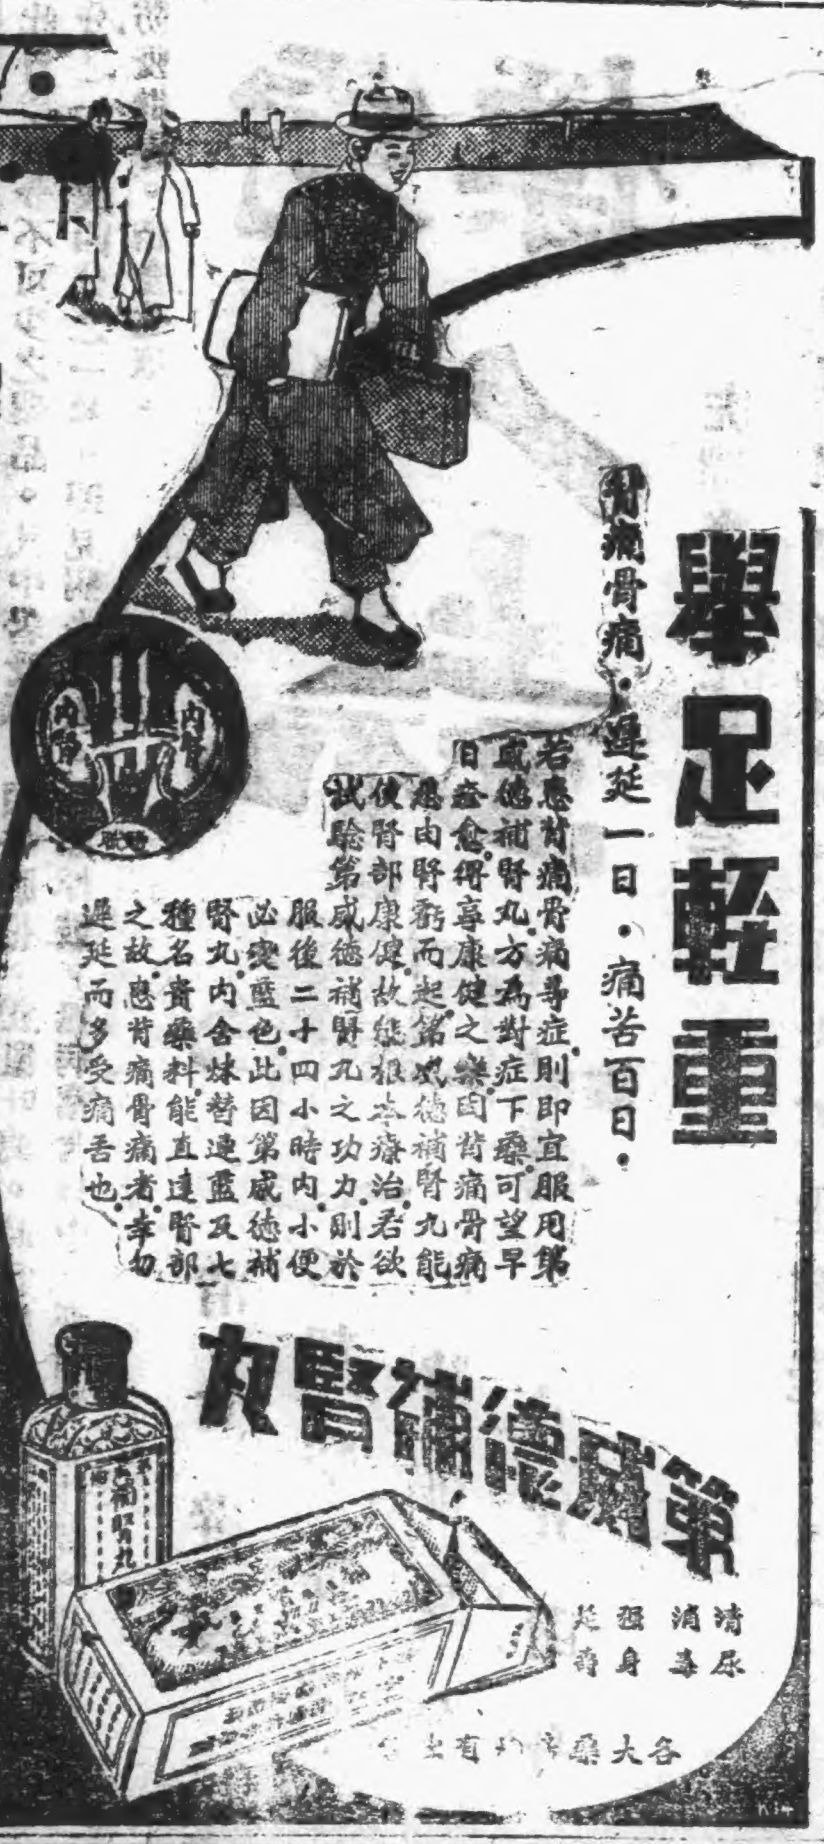 舉足輕重
背痛骨痛・遲延一日・痛苦百日・
若患背痛骨痛等症則即宜服用第
威德補腎丸。方為對症下藥。可望早
日痊愈。得享康健之樂。因背痛骨痛
悉由腎虧而起。第威德補腎丸能
使腎部康健。故能根本療治。君欲
試驗第威德補腎丸之功力。則於
服後二十四小時內。小便
必變藍色。此因第威德補
腎丸內含妹替連藍及七
種名貴藥料。能直達腎部
之故。患背痛骨痛者。幸勿
遲延而多受痛苦也。
內腎
內腎
膀胱
第威德補腎丸
補腎丸
清尿
消毒
强身
延壽
各大藥房均有出售
K14